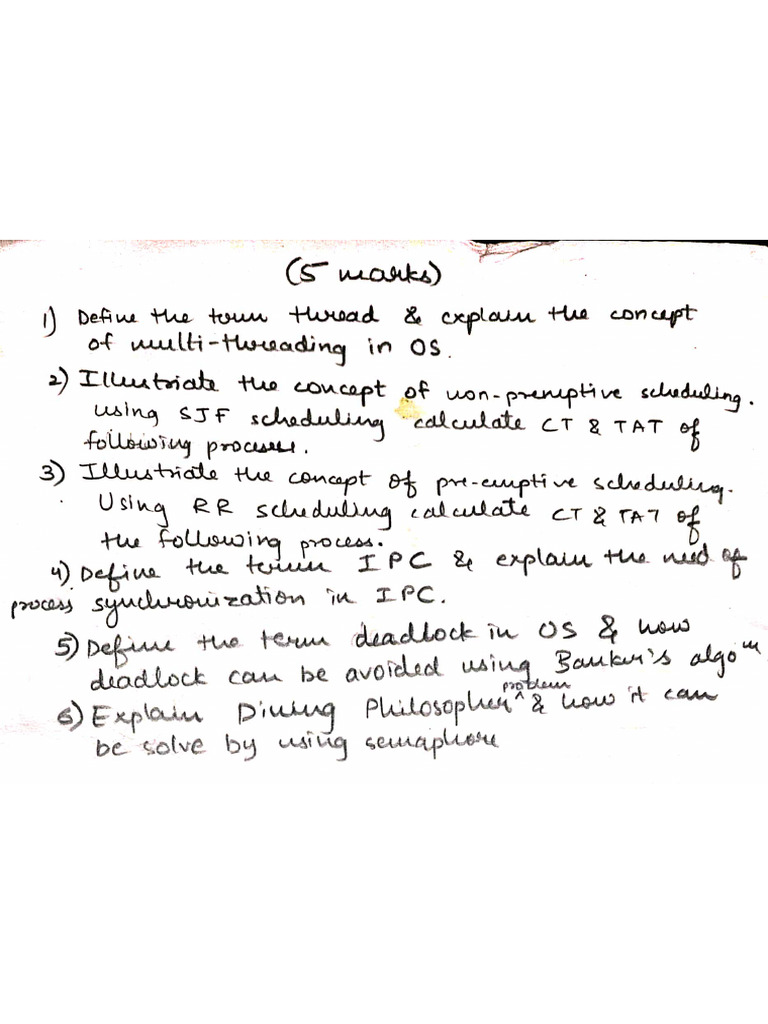 (5 marks)
1) Define the term thread & explain the concept
of multi-threading in OS.
2) Illustriate the concept of non-premptive scheduling.
using SJF scheduling calculate CT & TAT of
following processes.
3) Illustriate the concept of pre-emptive scheduling.
Using RR scheduling calculate CT & TAT of
the following process.
4) Define the term IPC & explain the need of
process synchronization in IPC.
5) Define the term deadlock in OS & how
deadlock can be avoided using Banker's algo^m
6) Explain Dining Philosopher ^problem & how it can
be solve by using semaphore